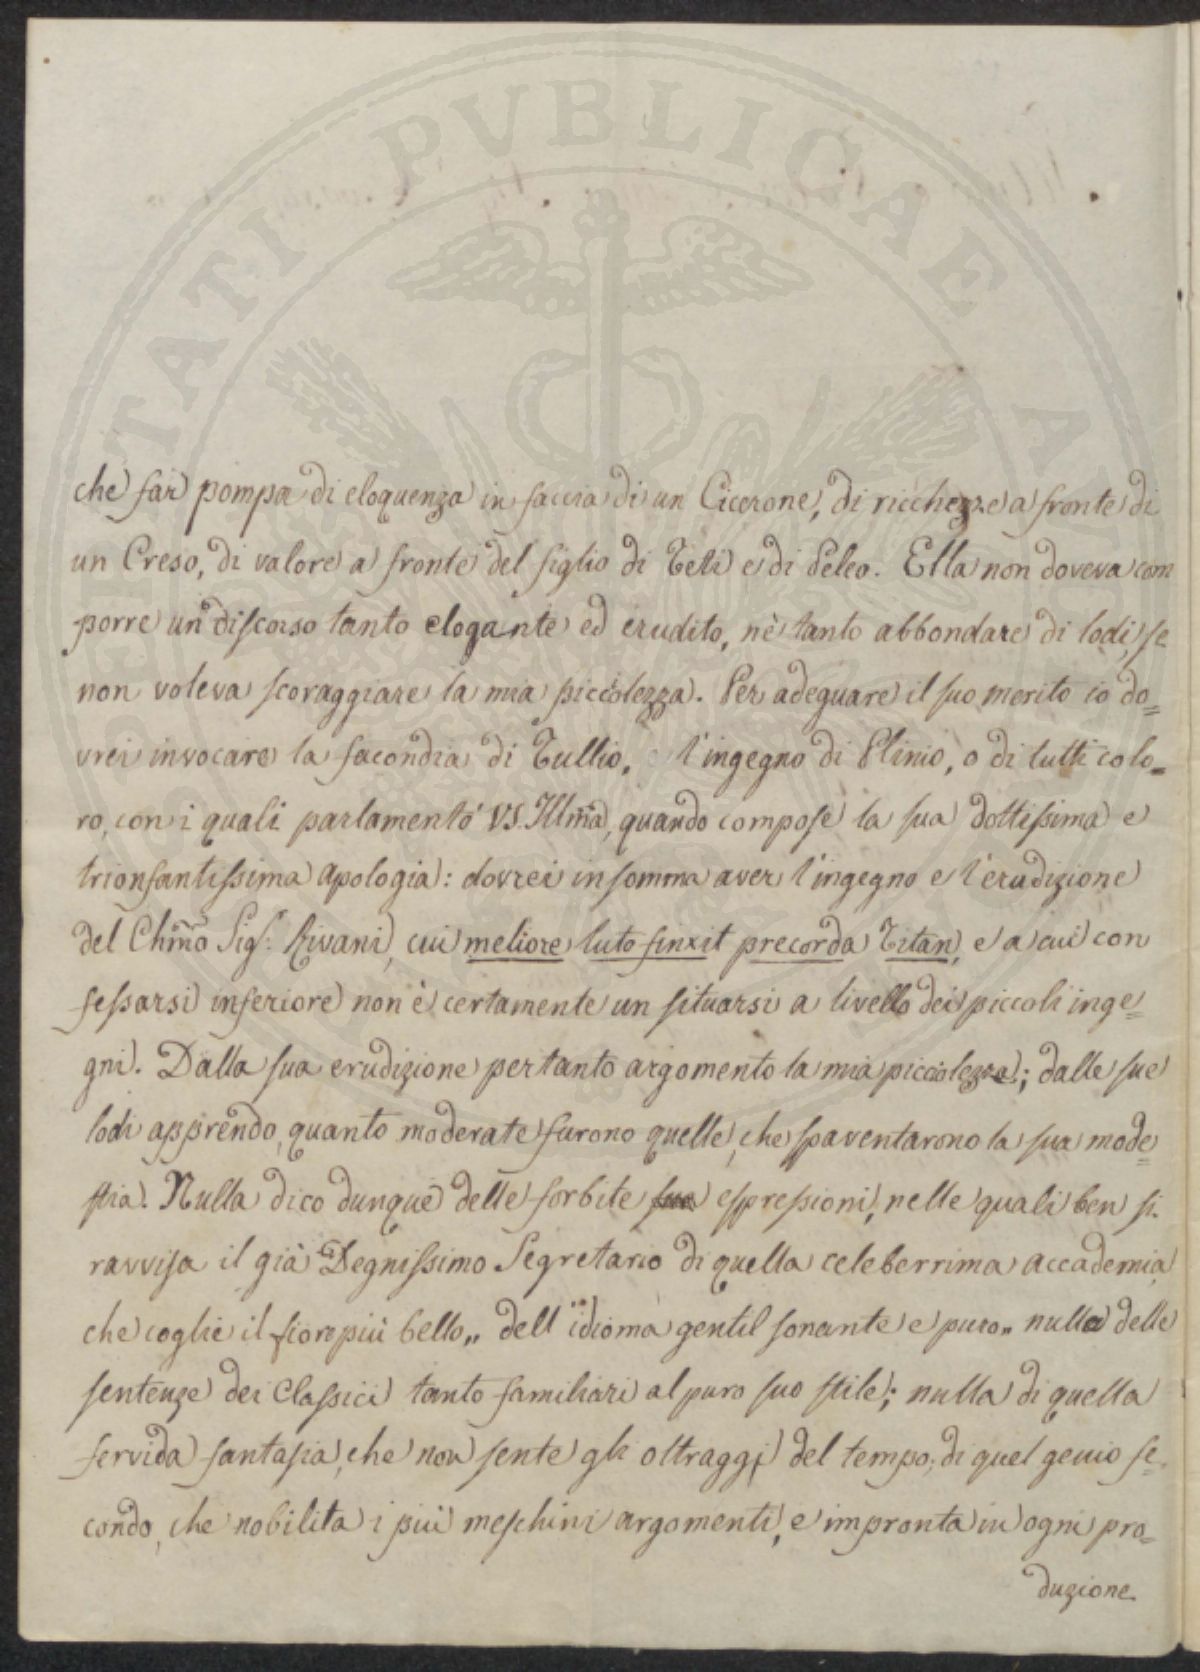 PROSPERITATI PVBLICAE AVGENDAE
che far pompa di eloquenza in faccia di un Cicerone, di ricchezze a fronte di
un Creso, di valore a fronte del figlio di Teti e di Peleo. Ella non doveva com
porre un discorso tanto elegante ed erudito, nè tanto abbondare di lodi, se
non voleva scoraggiare la mia piccolezza. Per adeguare il suo merito io do=
vrei invocare la facondia di Tullio, l'ingegno di Plinio, o di tutti colo=
ro, con i quali parlamentò VS. Illma, quando compose la sua dottissima e
trionfantissima Apologia: dovrei insomma aver l'ingegno e l'erudizione
del Chmo Sigr. Rivani, cui meliore luto finxit precorda Titan, e a cui con
fessarsi inferiore non è certamente un situarsi a livello dei piccoli inge=
gni. Dalla sua erudizione pertanto argomento la mia piccolezza; dalle sue
lodi apprendo, quanto moderate furono quelle, che spaventarono la sua mode=
stia. Nulla dico dunque delle forbite sue espressioni, nelle quali ben si
ravvisa il già Degnissimo Segretario di quella celeberrima accademia,
che coglie il fior più bello „ dell'idioma gentil sonante e puro „ nulla delle
sentenze dei Classici tanto familiari al puro suo stile; nulla di quella
fervida fantasia, che non sente gli oltraggi del tempo, di quel genio fe=
condo, che nobilita i più meschini argomenti, e impronta in ogni pro=
duzione